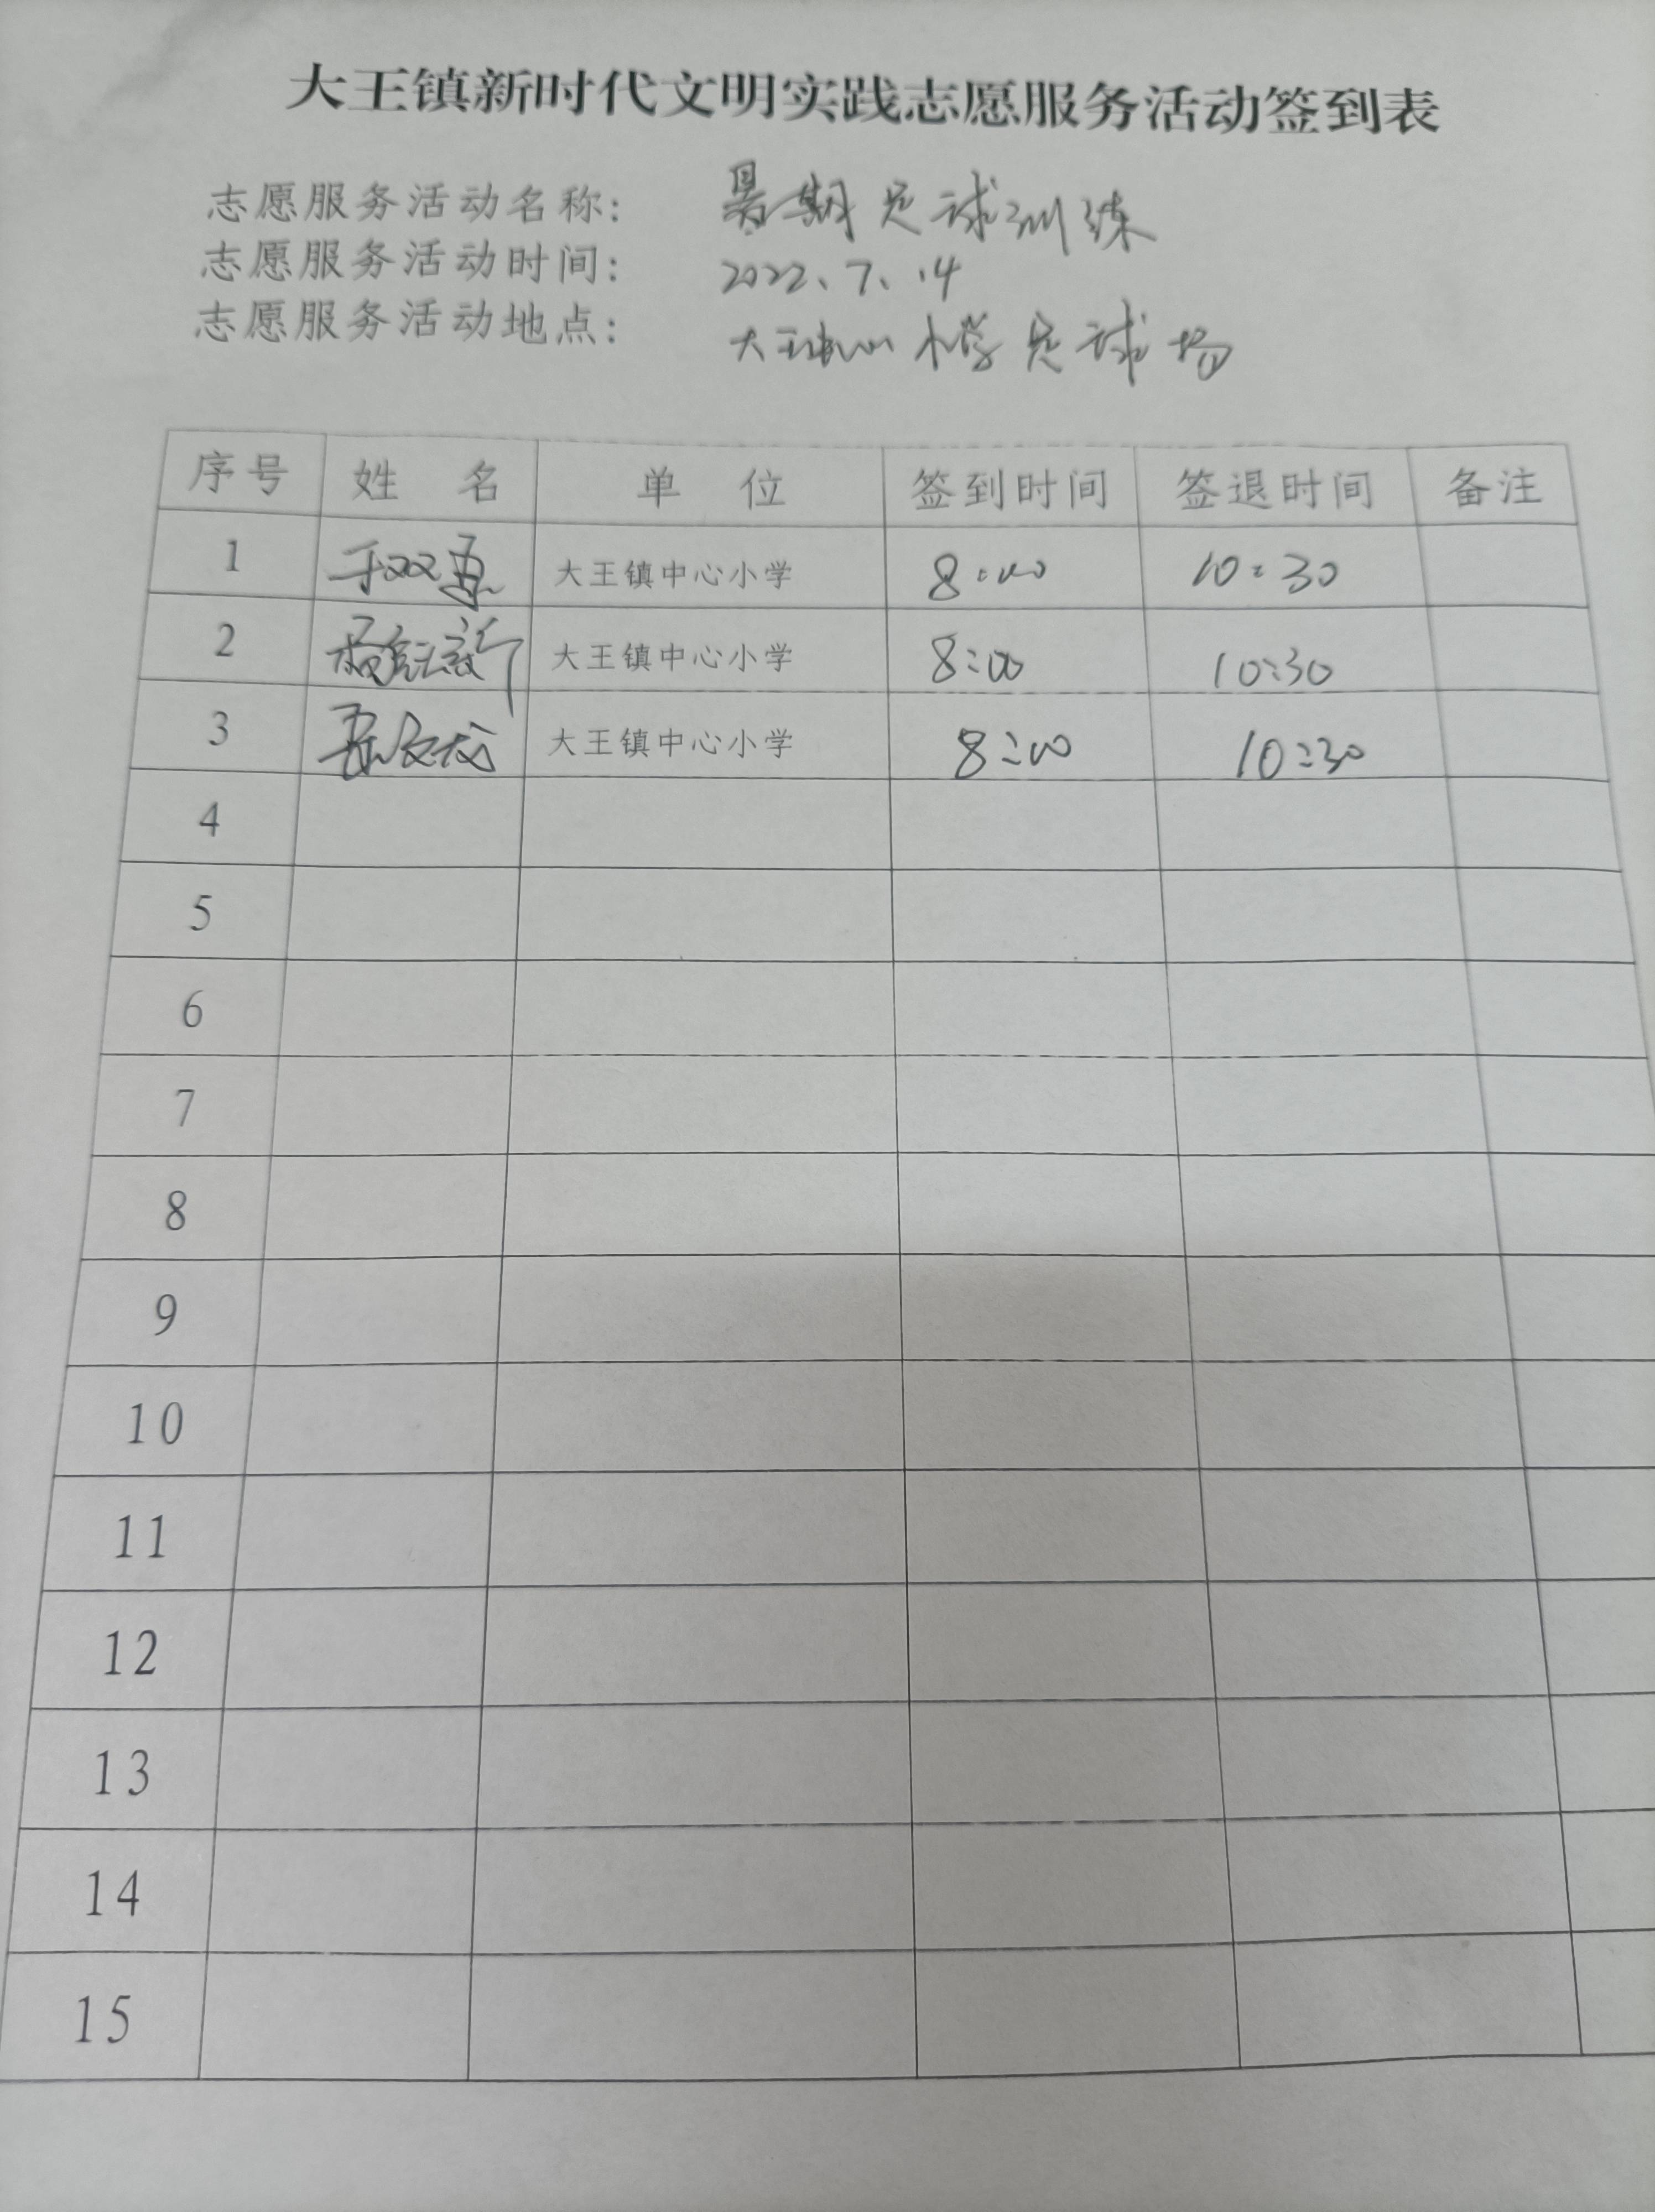 大王镇新时代文明实践志愿服务活动签到表
志愿服务活动名称： 暑期足球训练
志愿服务活动时间： 2022、7、14
志愿服务活动地点： 大王中心小学足球场
序号 姓 名 单 位 签到时间 签退时间 备注
1 大王镇中心小学 8:00 10:30
2 大王镇中心小学 8:00 10:30
3 大王镇中心小学 8:00 10:30
4
5
6
7
8
9
10
11
12
13
14
15